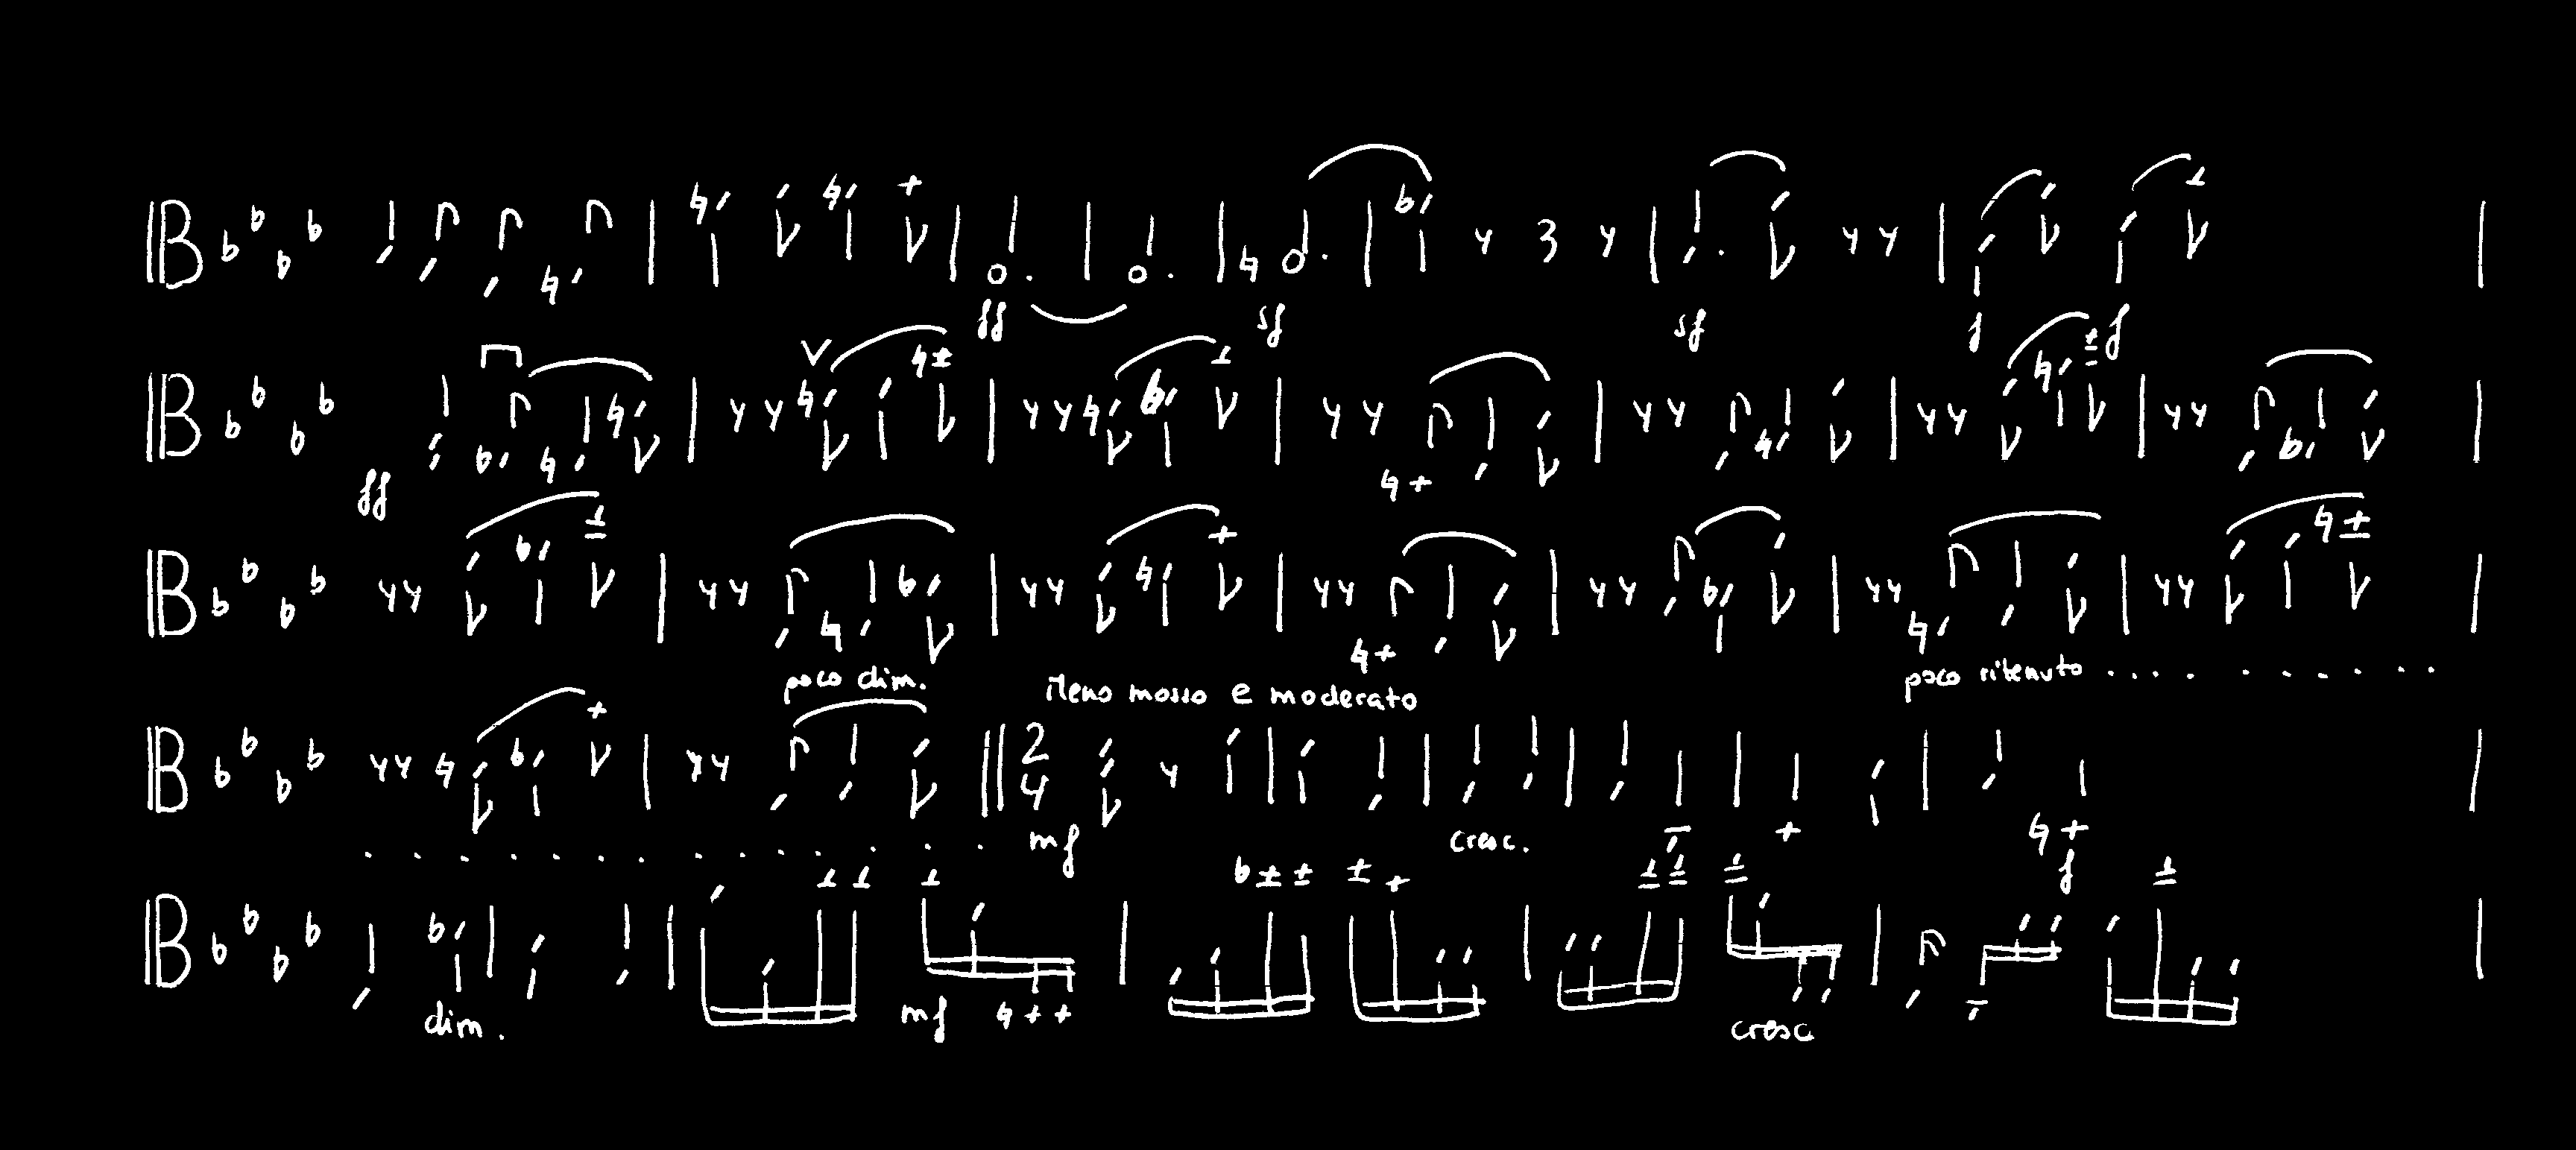 ff sf sf f f
ff
poco dim. Meno mosso e moderato poco ritenuto . . . . . . . . .
2 4 mf cresc. f
dim. mf cresc